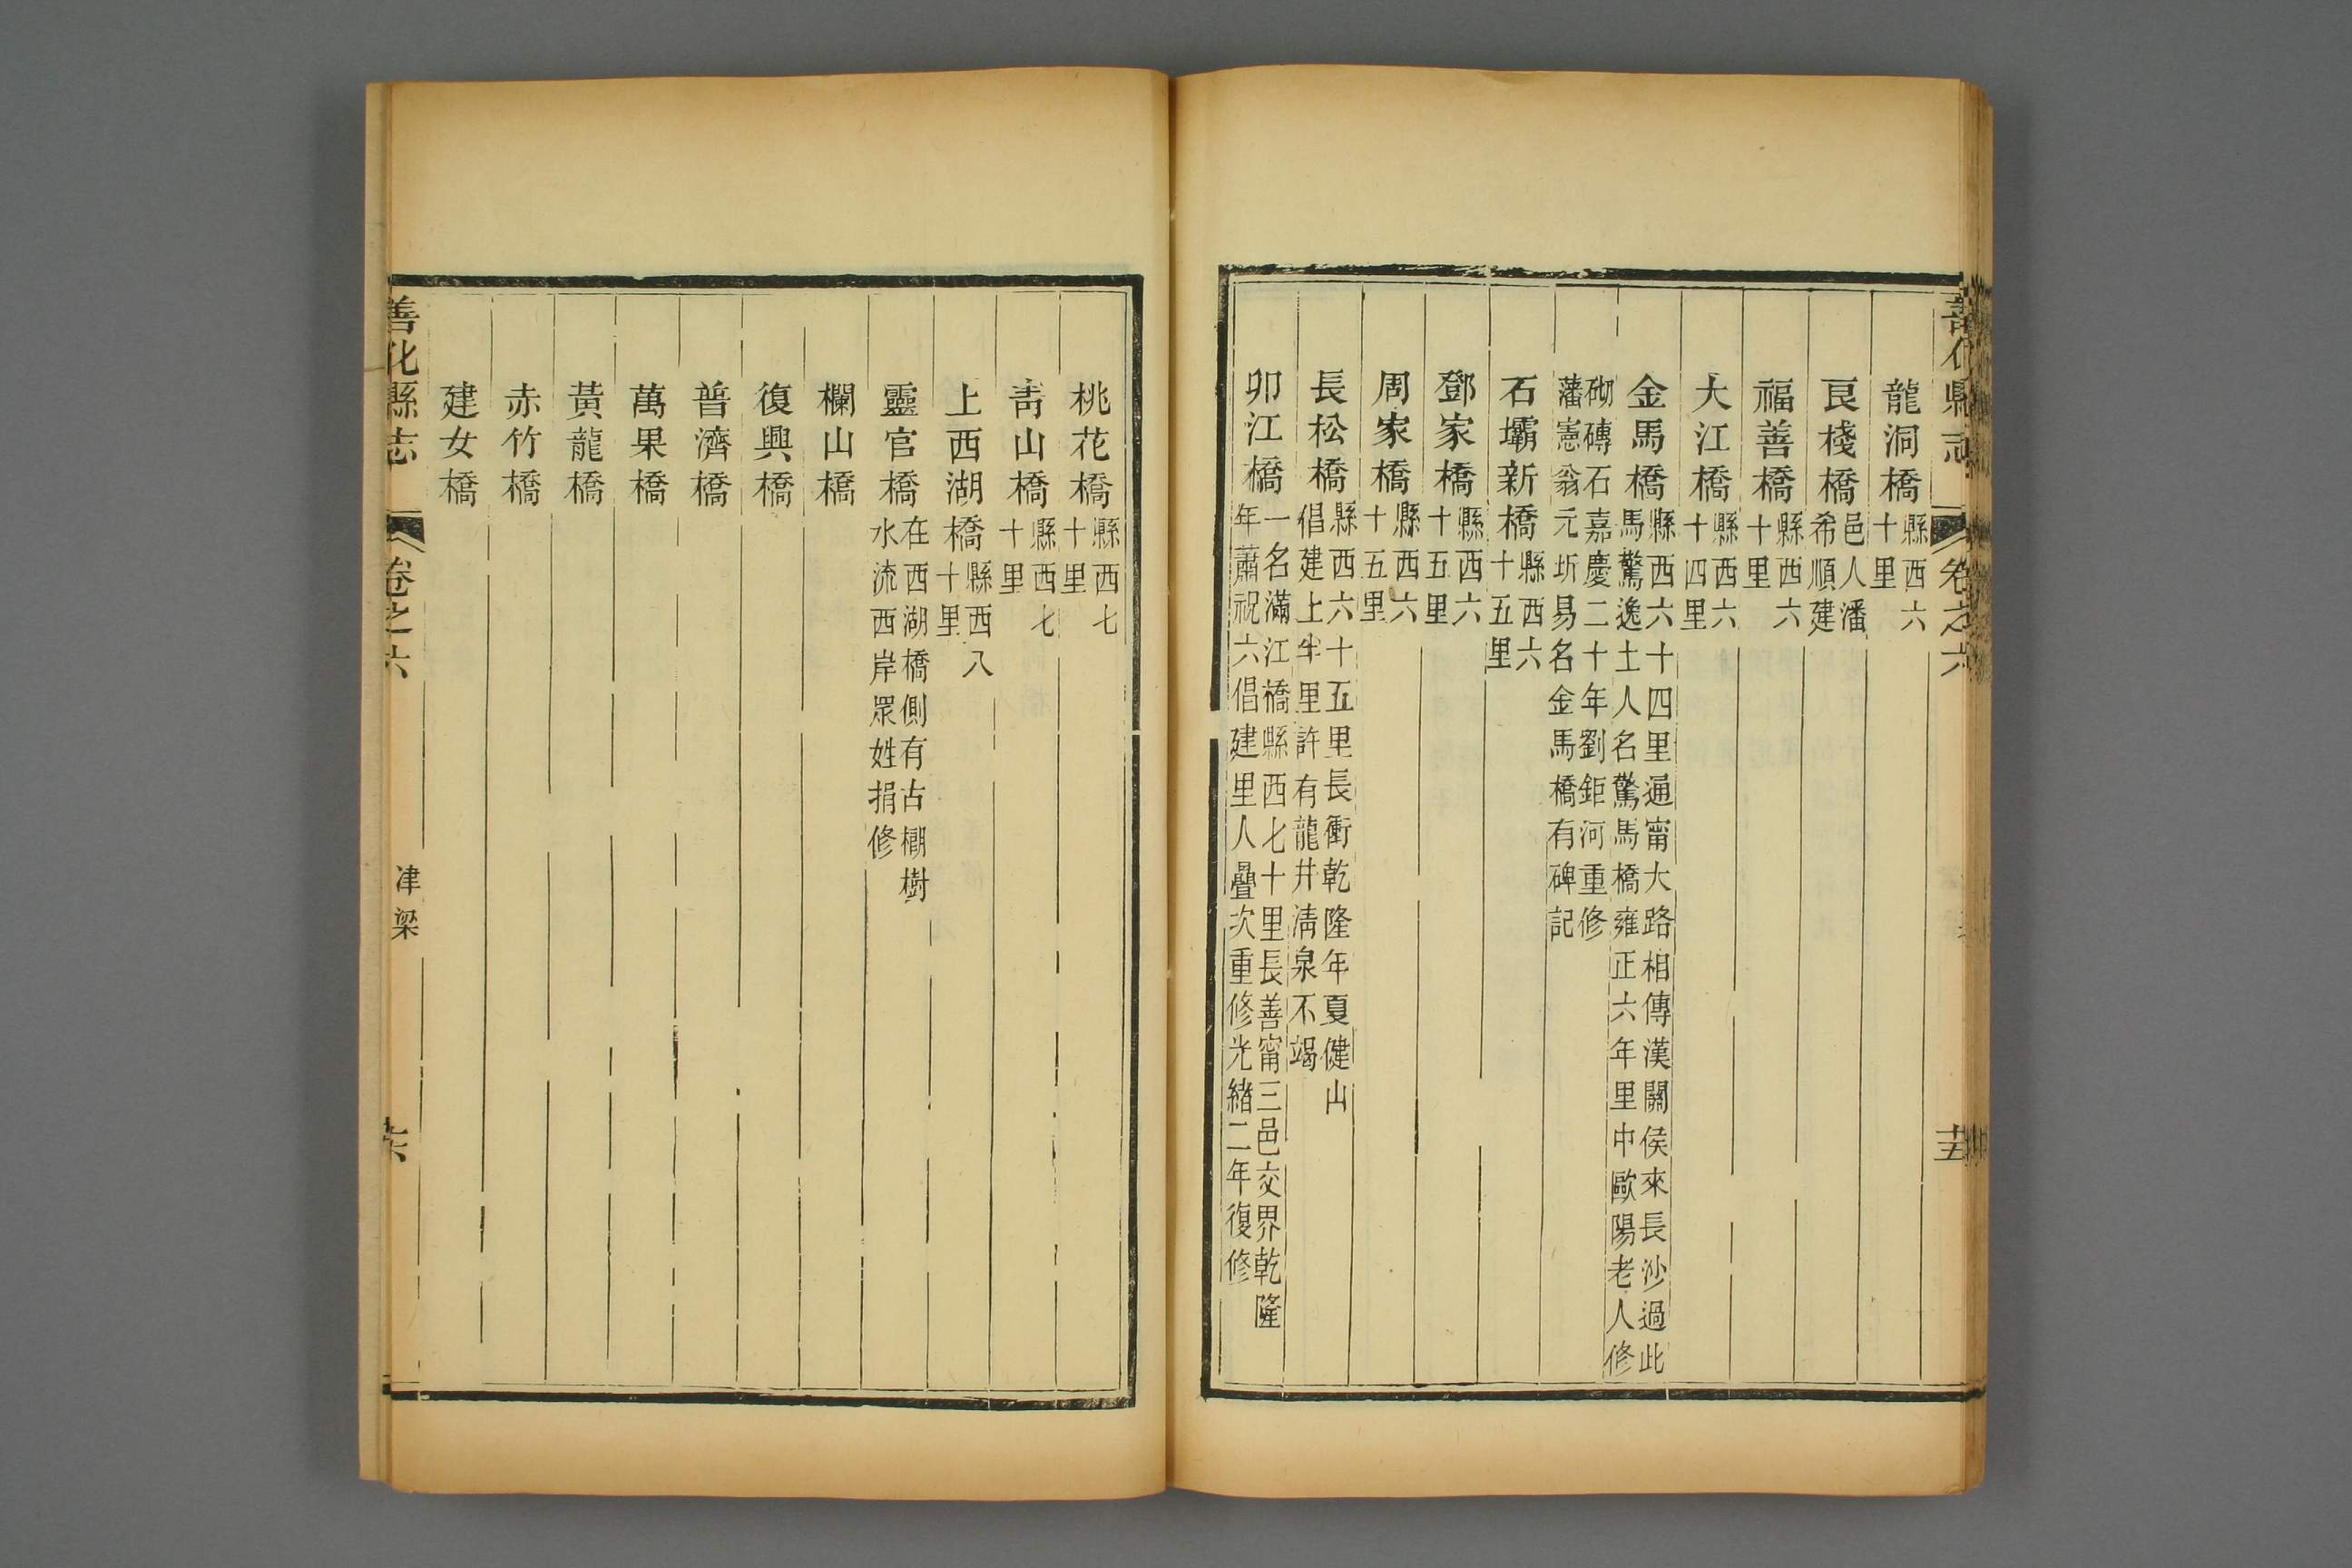 善化縣志 卷之六 十五
龍洞橋縣西六十里
良棧橋邑人潘希順建
福善橋縣西六十里
大江橋縣西六十四里
金馬橋縣西六十四里通甯大路相傳漢關侯來長沙過此馬驚逸土人名驚馬橋雍正六年里中歐陽老人修
砌磚石嘉慶二十年劉鉅河重修藩憲翁元圻易名金馬橋有碑記
石壩新橋縣西六十五里
鄧家橋縣西六十五里
周家橋縣西六十五里
長松橋縣西六十五里長衝乾隆年夏健山倡建上半里許有龍井清泉不竭
卯江橋一名滿江橋縣西七十里長善甯三邑交界乾隆年蕭祝六倡建里人疊次重修光緒二年復修
桃花橋縣西七十里
靑山橋縣西七十里
上西湖橋縣西八十里
靈官橋在西湖橋側有古樹水流西岸眾姓捐修
欄山橋
復興橋
普濟橋
萬果橋
黃龍橋
赤竹橋
建女橋
善化縣志 卷之六 津梁 十六